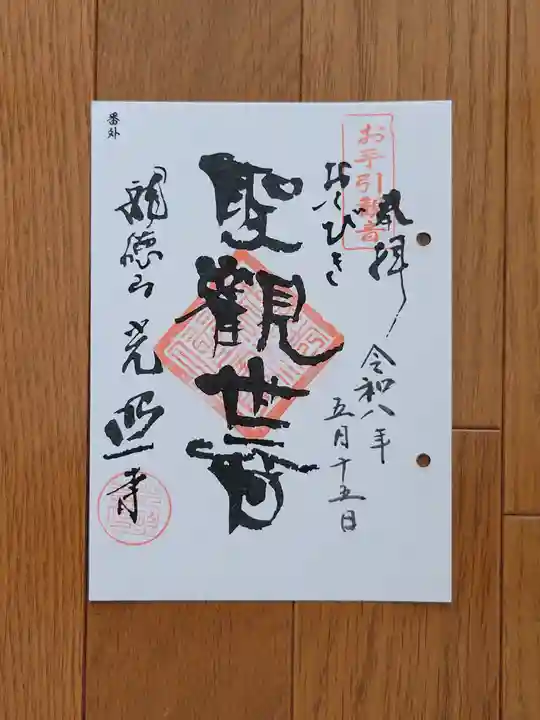 奉拝
令和八年
五月十五日
お手引観音
おてびき
聖観世音
龍徳山 光照寺
番外